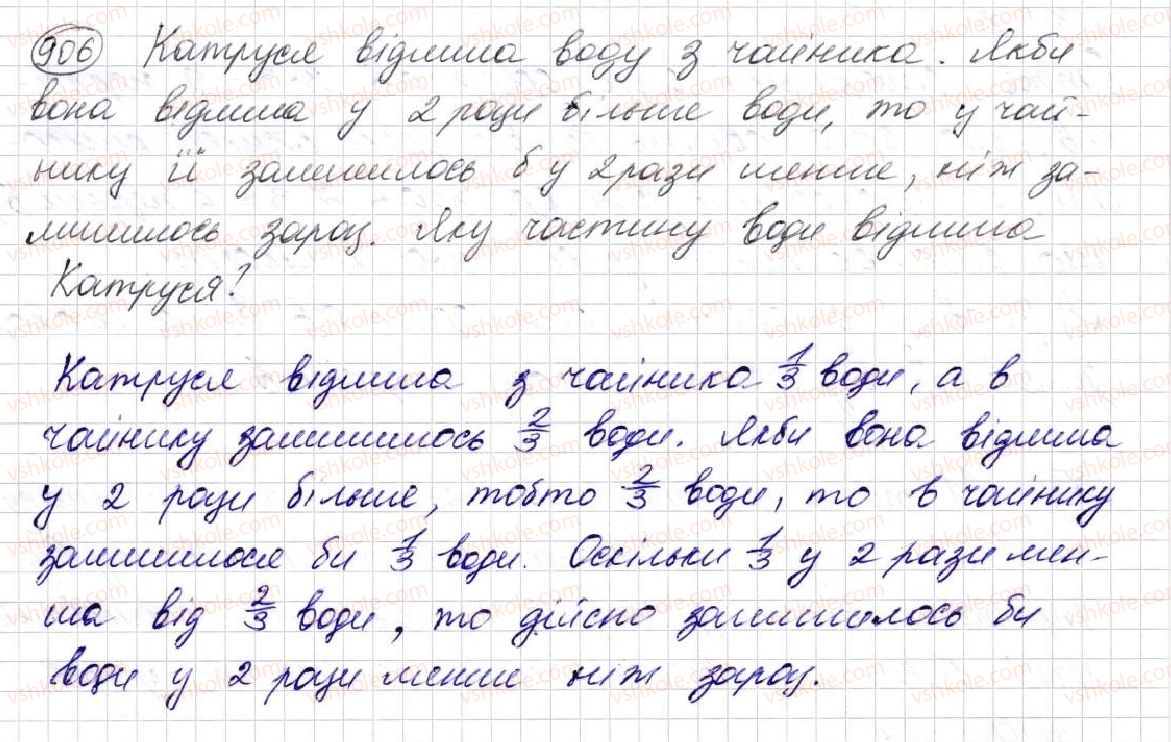 906 Катруся відлила воду з чайника. Якби
вона відлила у 2 рази більше води, то у чай-
нику її залишилось б у 2 рази менше, ніж за-
лишилось зараз. Яку частину води відлила
Катруся?
Катруся відлила з чайника 1/3 води, а в
чайнику залишилось 2/3 води. Якби вона відлила
у 2 рази більше, тобто 2/3 води, то в чайнику
залишилося би 1/3 води. Оскільки 1/3 у 2 рази мен-
ша від 2/3 води, то дійсно залишилось би
води у 2 рази менше ніж зараз.